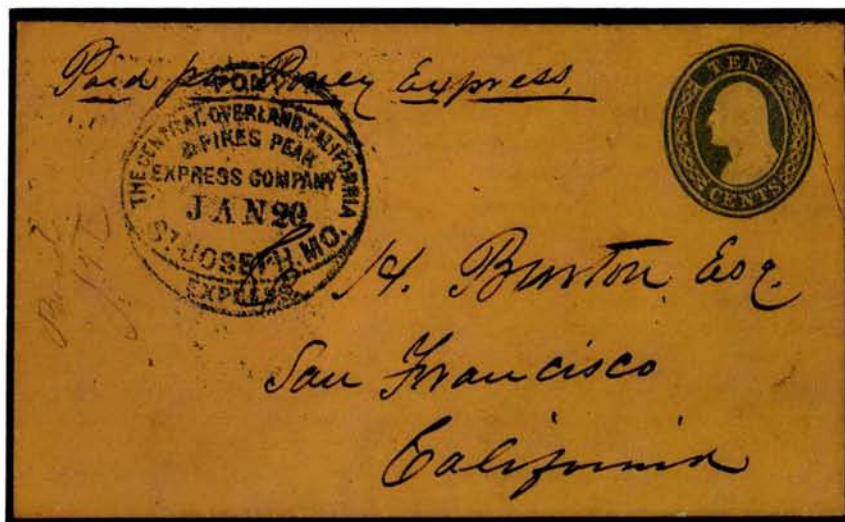 Paid per Poney Express
TEN
CENTS
PONY
THE CENTRAL OVERLAND CALIFORNIA
& PIKES PEAK
EXPRESS COMPANY
JAN 20
ST. JOSEPH, MO.
EXPRESS
H. Burton, Esq.
San Francisco
California